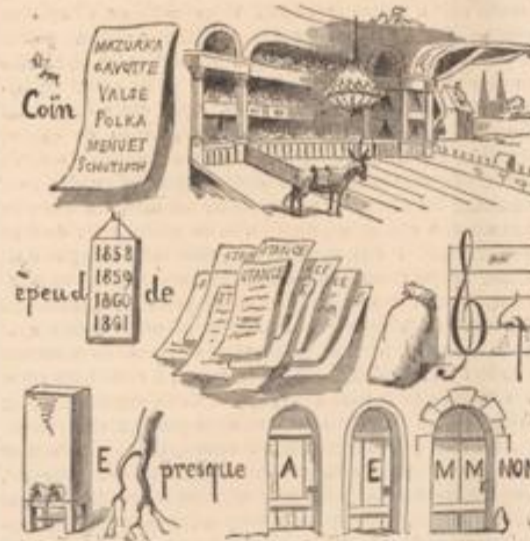 Coïn
MAZURKA
GAVOTTE
VALSE
POLKA
MENUET
SCHOTISCH
èpeud
1858
1859
1860
1861
de
STANCE
E
presque
A
E
M M
NON